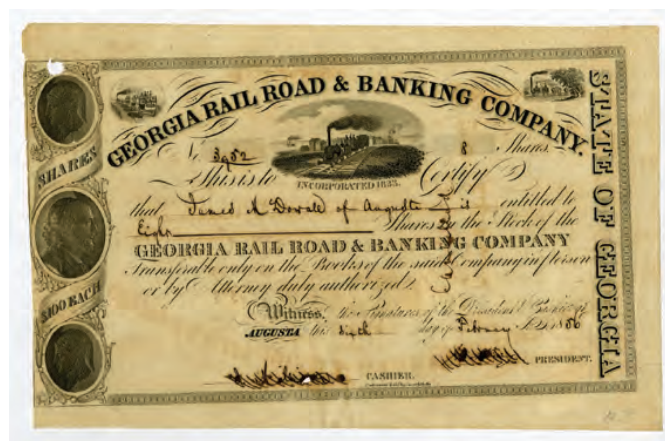 GEORGIA RAIL ROAD & BANKING COMPANY.
STATE OF GEORGIA
SHARES
$100 EACH
No. 3952 8 Shares.
INCORPORATED 1833.
This is to Certify
that James of Augusta is entitled to
Eight Shares in the Stock of the
GEORGIA RAIL ROAD & BANKING COMPANY
Transferable only on the Books of the said Company in person
or by Attorney duly authorized.
Witness, the Signatures of the President & Cashier
AUGUSTA this sixth day of February 1856
PRESIDENT.
CASHIER.